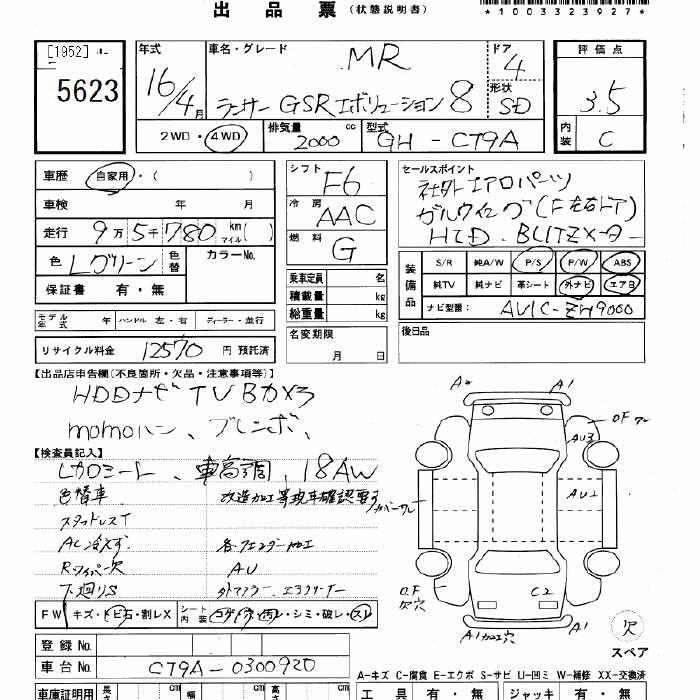 出品票 (状態説明書)
*1003323927*
[1952]
5623
年式
16/4月
車名・グレード
MR
ランサー GSRエボリューション 8
ドア
4
形状
SD
評価点
3.5
内装
C
2WD・4WD
排気量
2000 cc
型式
GH-CT9A
車歴 自家用・( )
車検 年 月
走行 9万5千780 km マイル( )
色 Lグリーン 色替 カラーNo.
保証書 有・無
モデル年式 年 ハンドル 左・右 ディーラー・並行
リサイクル料金 12570 円 預託済
シフト
F6
冷房
AAC
燃料
G
乗車定員 名
積載量 kg
総重量 kg
名変期限
月 日
セールスポイント
社外エアロパーツ
ガルウイング(F左右ドア)
HID、BLITZ
装備品
S/R 純A/W P/S P/W ABS
純TV 純ナビ 革シート 外ナビ エアB
ナビ型番: AVIC-ZH9000
後日品
【出品店申告欄(不良箇所・欠品・注意事項等)】
HDDナビ TV Bカメラ
momoハン、ブレンボ、
【検査員記入】
レカロシート、車高調、18AW
色替車 改造加工等現車確認要す
スタッドレスT
AC冷えず 各フェンダー加工
Rワイパー欠 AU
下廻りS 外マフラー エアクリーナー
FW キズ・トビ石・割レX
シート内装 コゲ・穴・汚レ・シミ・破レ・スレ
登録No.
車台No. CT9A-0300920
車庫証明用 長さ cm 幅 cm cm
A2
A1
OF
AU3
AU2
カバーワレ
O.F
欠穴
C2
A1加工穴
A1
欠
スペア
A-キズ C-腐食 E-エクボ S-サビ U-凹ミ W-補修 XX-交換済
工具 有・無 ジャッキ 有・無